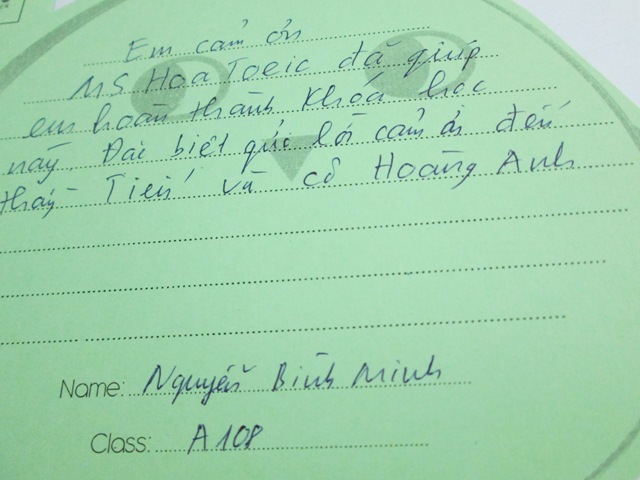 Em cảm ơn
MS Hoa Toeic đã giúp
em hoàn thành khoá học
này. Đặc biệt gửi lời cảm ơn đến
thầy Tiến và cô Hoàng Anh
Name: Nguyễn Bình Minh
Class: A108